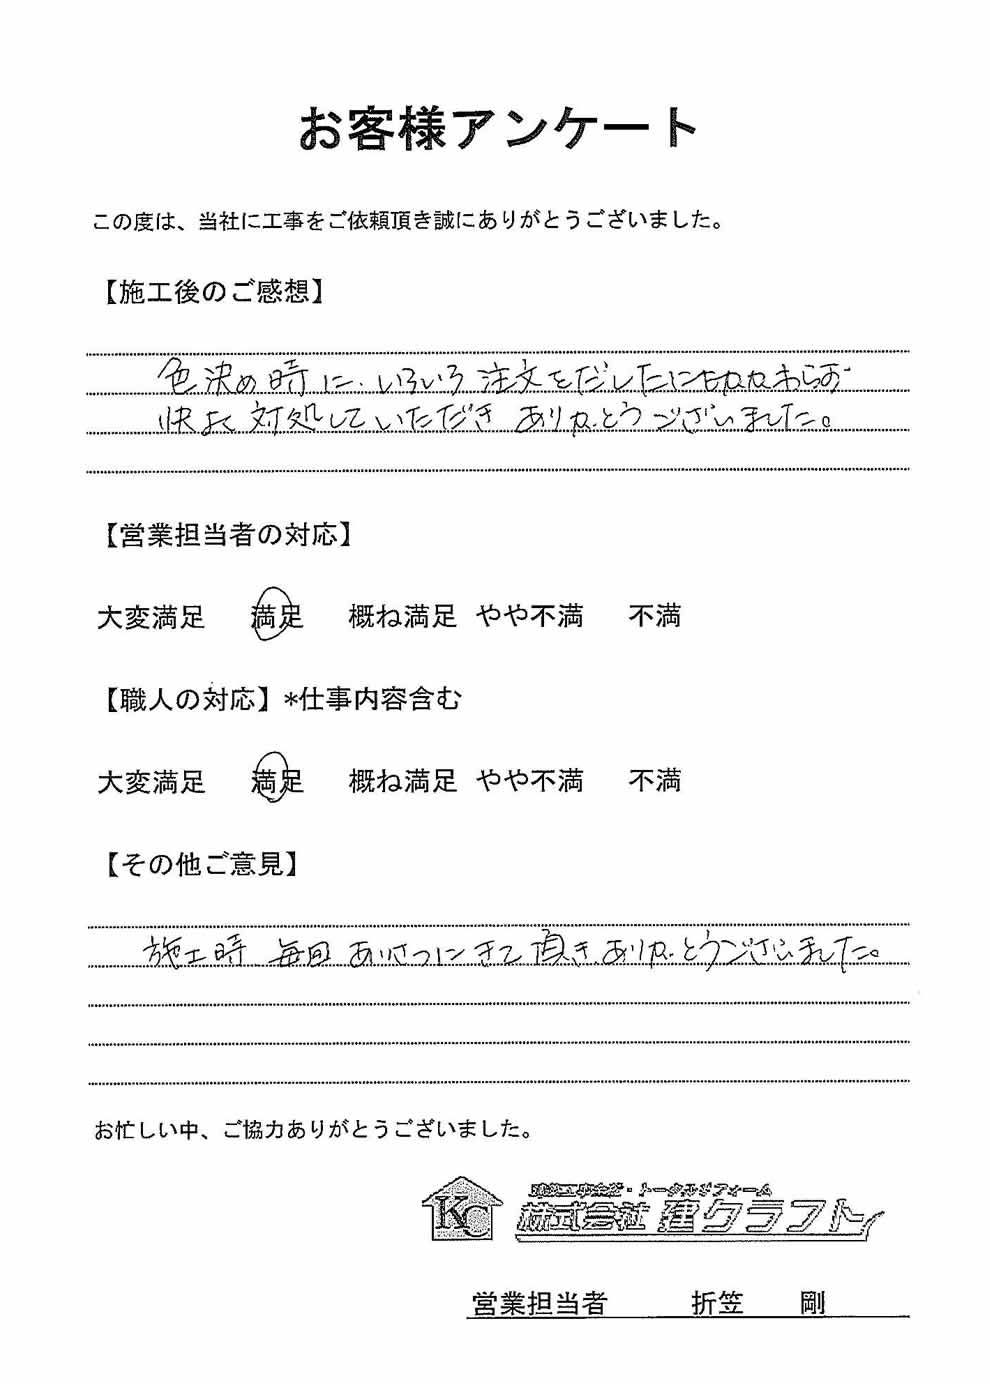 お客様アンケート
この度は、当社に工事をご依頼頂き誠にありがとうございました。
【施工後のご感想】
色決め時に、いろいろ注文をだしたにもかかわらず
快よく対処していただきありがとうございました。
【営業担当者の対応】
大変満足 満足 概ね満足 やや不満 不満
【職人の対応】*仕事内容含む
大変満足 満足 概ね満足 やや不満 不満
【その他ご意見】
施工時 毎回 あいさつにきて頂きありがとうございました。
お忙しい中、ご協力ありがとうございました。
KC
・トータルリフォーム
株式会社 建クラフト
営業担当者 折笠 剛